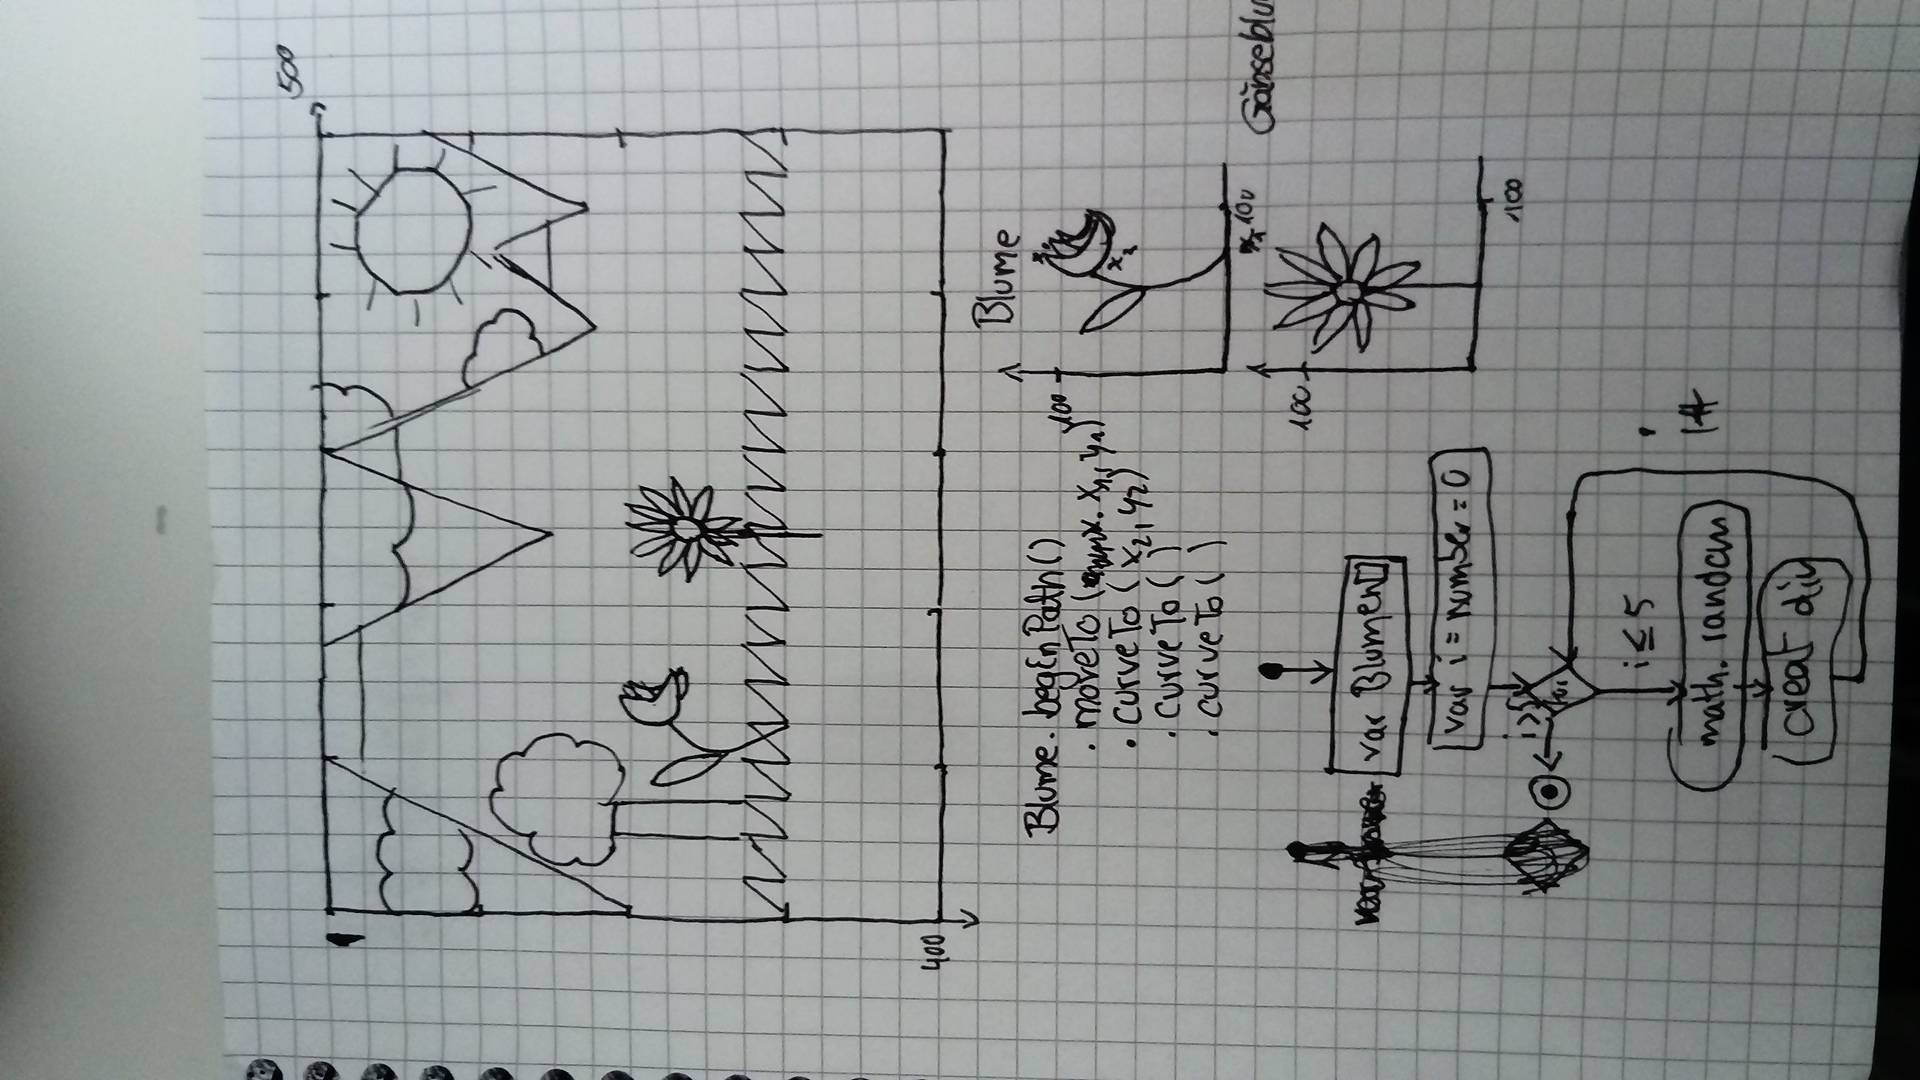 500
400
Blume
Blume. beginPath()
. moveTo ( x1, y1)
100
. curveTo ( x2, y2)
. curveTo ( )
. curveTo ( )
x2
x1 100
Gänseblu
100
100
var Blumen[]
var i = number = 0
i > 5
for
i ≤ 5
math. random
i++
creat div